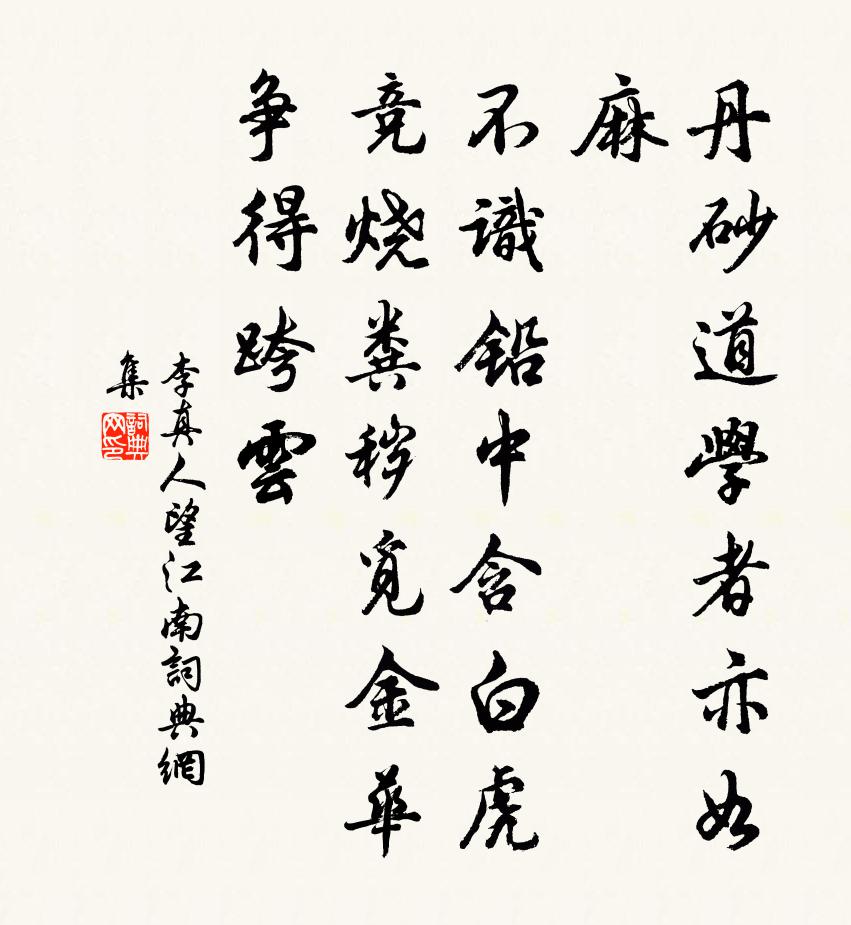 丹砂道學者亦如
麻
不識鉛中含白虎
竞烧糞穢覓金華
争得跨雲
李真人望江南詞典網
集
詞典
网印